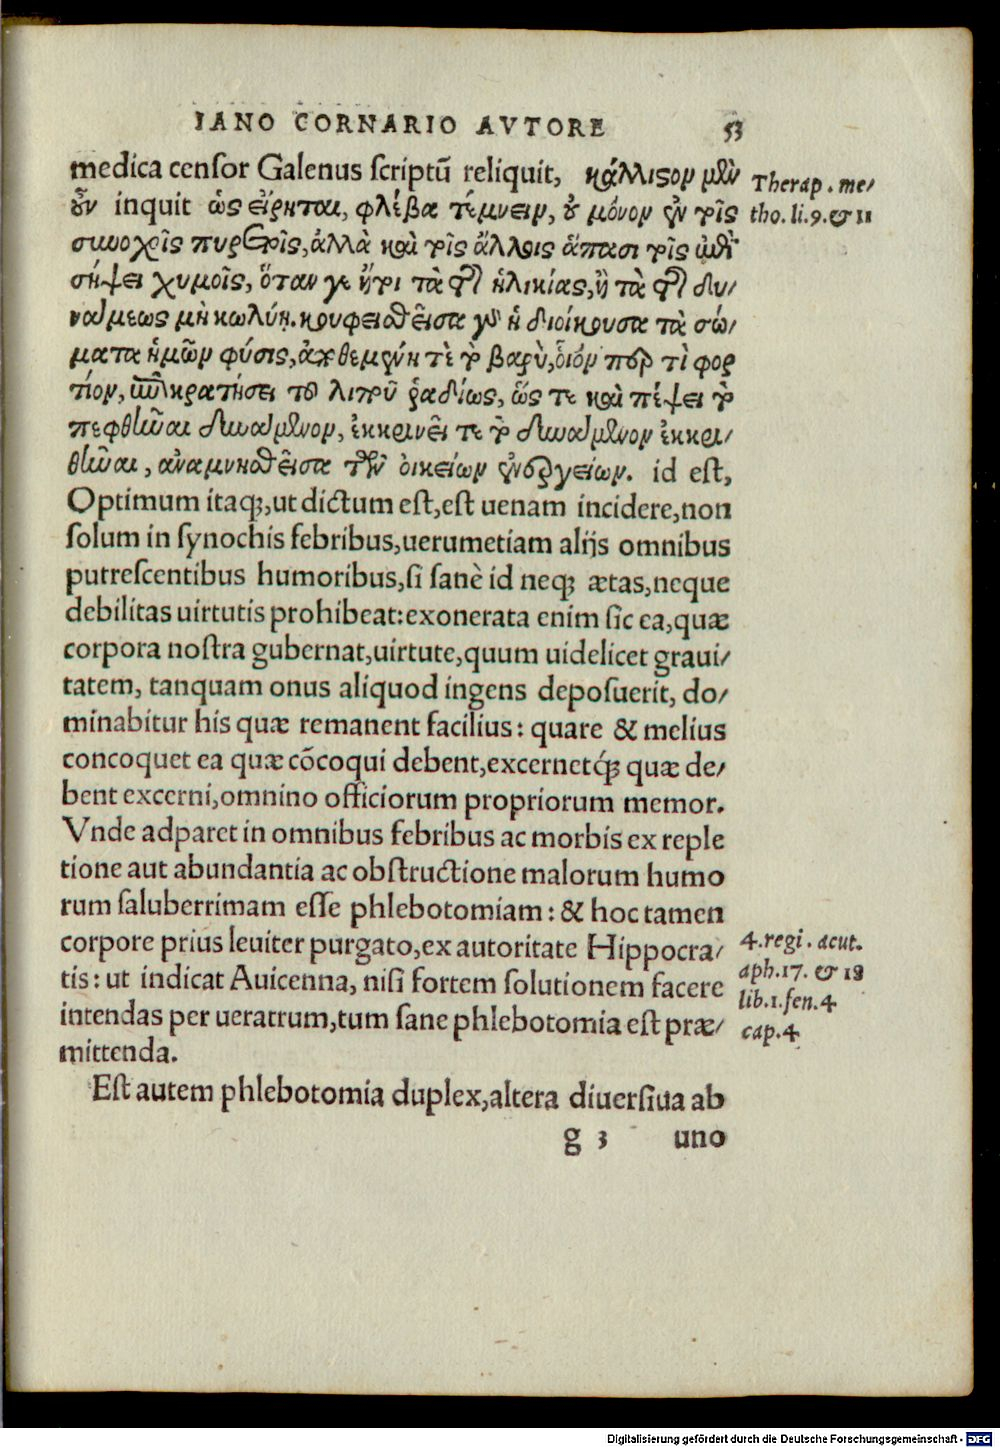 IANO CORNARIO AVTORE 53
medica censor Galenus scriptũ reliquit, κάλλιςον μὲν
οὖν inquit ὡς εἴρηται, φλέβα τέμνειν, οὐ μόνον ἐν τοῖς
συνοχοῖς πυρετοῖς, ἀλλὰ καὶ τοῖς ἄλλοις ἅπασι τοῖς ἐπὶ
σήψει χυμοῖς, ὅταν γε ἤτοι τὰ τῆς ἡλικίας, ἢ τὰ τῆς δυ/
νάμεως μὴ κωλύῃ. κουφισθεῖσα γὰρ ἡ διοικοῦσα τὰ σώ/
ματα ἡμῶν φύσις, ἀχθεμένη τὲ τὸ βαρὺ, οἷόν περ τὶ φορ
τίον, ἐπικρατήσει τοῦ λοιποῦ ῥαδίως, ὥς τε καὶ πέψει τὸ
πεφθῆναι δυνάμενον, ἐκκρινεῖ τε τὸ δυνάμενον ἐκκρι/
θῆναι, ἀναμνησθεῖσα τῶν οἰκείων ἐνεργείων. id est,
Optimum itaq;, ut dictum est, est uenam incidere, non
solum in synochis febribus, uerumetiam alijs omnibus
putrescentibus humoribus, si sanè id neq; ætas, neque
debilitas uirtutis prohibeat: exonerata enim sic ea, quæ
corpora nostra gubernat, uirtute, quum uidelicet graui/
tatem, tanquam onus aliquod ingens deposuerit, do/
minabitur his quæ remanent facilius: quare & melius
concoquet ea quæ cõcoqui debent, excernetq́; quæ de/
bent excerni, omnino officiorum propriorum memor.
Vnde adparet in omnibus febribus ac morbis ex reple
tione aut abundantia ac obstructione malorum humo
rum saluberrimam esse phlebotomiam: & hoc tamen
corpore prius leuiter purgato, ex autoritate Hippocra/
tis: ut indicat Auicenna, nisi fortem solutionem facere
intendas per ueratrum, tum sane phlebotomia est præ/
mittenda.
Est autem phlebotomia duplex, altera diuersiua ab
g 3 uno
Therap. me/
tho. li. 9. & 11
4. regi. acut.
aph. 17. & 18
lib. 1. fen. 4
cap. 4
Digitalisierung gefördert durch die Deutsche Forschungsgemeinschaft - DFG